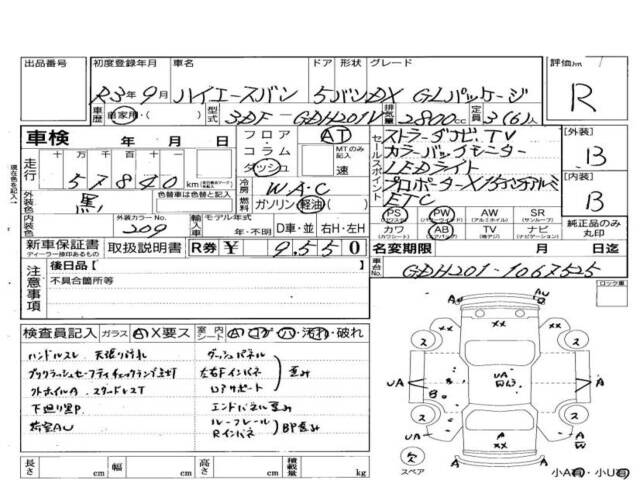 出品番号 初度登録年月 車名 ドア 形状 グレード 評価点
R3年9月 ハイエースバン 5 バン DX GLパッケージ R
車歴 自家用・( ) 型式 3DF-GDH201V 排気量 2800cc 定員 3(6)人
車検 年 月 日
フロア・コラム・ダッシュ AT MTのみ記入 速
セールスポイント
ストラーダナビ、TV
カラーバックモニター
LEDライト
ETC
[外装] B
[内装] B
走行 十万 万 千 百 十 一
57840 km
現在色を記入
外装色 黒 色替車は色替と記入
内装色 外装カラーNo. 209
冷房 WAC
燃料 ガソリン・軽油・( )
輸入車 モデル年式 年・不明 D車・並 右H・左H
PS PW AW SR
(パワーウィンド) (アルミホイル) (サンルーフ)
カワ AB TV ナビ
(カワシート) (エアバッグ) (ナビゲーション)
純正品のみ丸印
新車保証書 取扱説明書 R券 ¥ 9,550
ディーラー捺印あるもの
名変期限 月 日迄
注意事項 後日品[ ]
不具合箇所等
車台No. GDH201-1067525
ロック車
検査員記入 ガラス A・X要ス 室内シート A・コゲ・穴・汚れ・破れ
ハンドルスレ 天張り汚れ
外ホイルA スタッドレスT
下廻り黒P
ダッシュパネル
左右Fインパネ
コアサポート
歪み
エンドパネル歪み
ルーフレール
Rインパネ
BP歪み
長さ cm 幅 cm 高さ cm 積載量 kg
A AU
XX
UA
A
UA
B
XX
ス
スペア
小A有・小U有